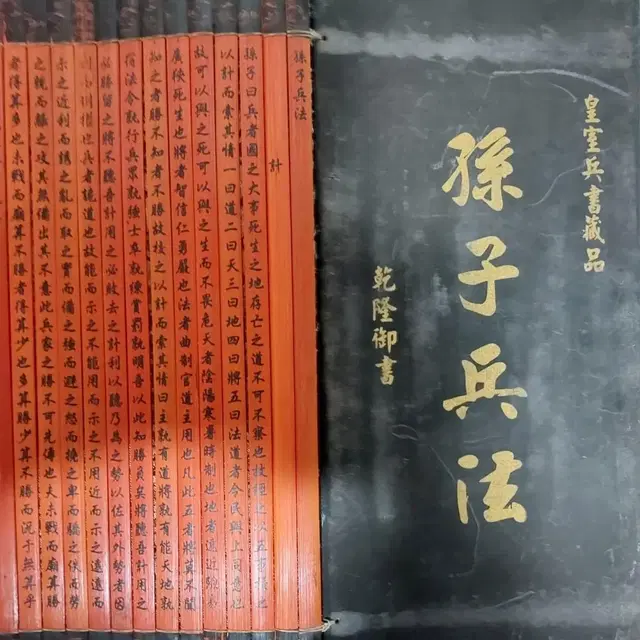 皇室兵書藏品
孫子兵法
乾隆御書
孫子兵法
計
孫子曰兵者國之大事死生之地存亡之道不可不察也故經之以五事
以計而索其情一曰道二曰天三曰地四曰將五曰法道者令民與上同意也
故可以與之死可以與之生而不畏危天者陰陽寒暑時制也地者遠近險易
廣狹死生也將者智信仁勇嚴也法者曲制官道主用也凡此五者將莫不聞
知之者勝不知者不勝故校之以計而索其情曰主孰有道將孰有能天地孰
得法令孰行兵眾孰強士卒孰練賞罰孰明吾以此知勝負矣將聽吾計用之
必勝留之將不聽吾計用之必敗去之計利以聽乃為之勢以佐其外勢者因
也兵者詭道也故能而示之不能用而示之不用近而示之遠遠而
示之近利而誘之亂而取之實而備之強而避之怒而撓之卑而驕之佚而勞
之親而離之攻其無備出其不意此兵家之勝不可先傳也夫未戰而廟算勝
者得算多也未戰而廟算不勝者得算少也多算勝少算不勝而況于無算乎